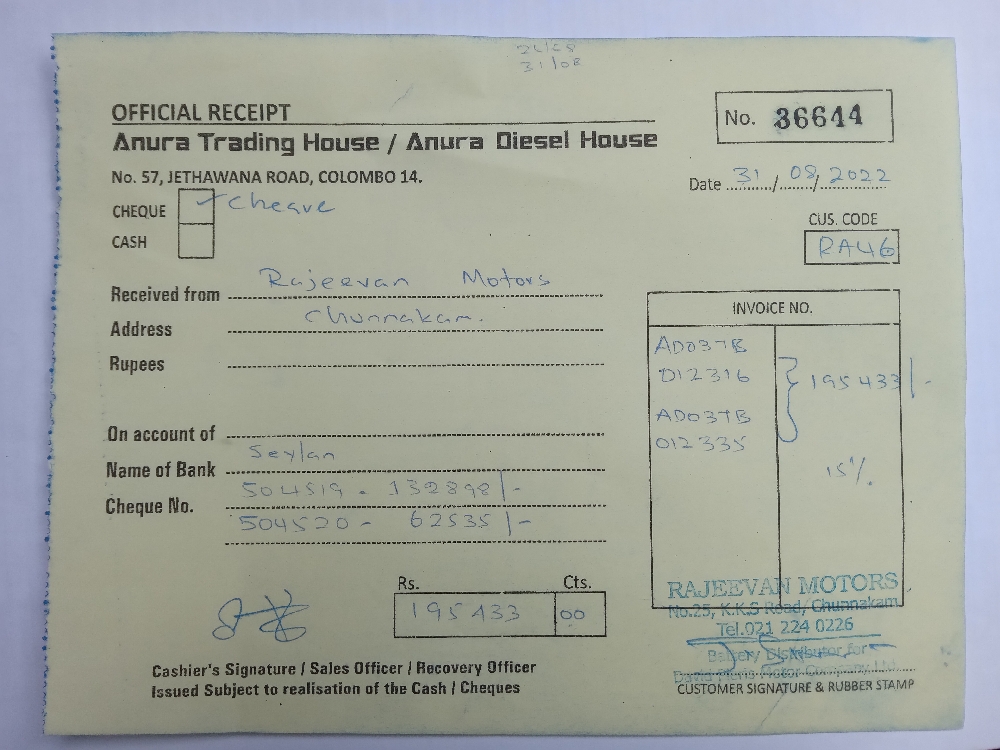 31/08
OFFICIAL RECEIPT
No. 36644
Anura Trading House / Anura Diesel House
No. 57, JETHAWANA ROAD, COLOMBO 14.
Date 31/08/2022
CHEQUE ✓ cheque
CASH
CUS. CODE
RA46
Received from Rajeevan Motors
Address Chunnakam.
Rupees
INVOICE NO.
AD037B
012316
195433/-
AD037B
012335
15%
On account of
Name of Bank Seylan
Cheque No. 504519 - 132898/-
504520 - 62535/-
Rs. Cts.
195433 00
RAJEEVAN MOTORS
No.25, K.K.S Road, Chunnakam
Tel.021 224 0226
Battery Distributor for
David Pieris Motor Company Ltd.
Cashier's Signature / Sales Officer / Recovery Officer
Issued Subject to realisation of the Cash / Cheques
CUSTOMER SIGNATURE & RUBBER STAMP